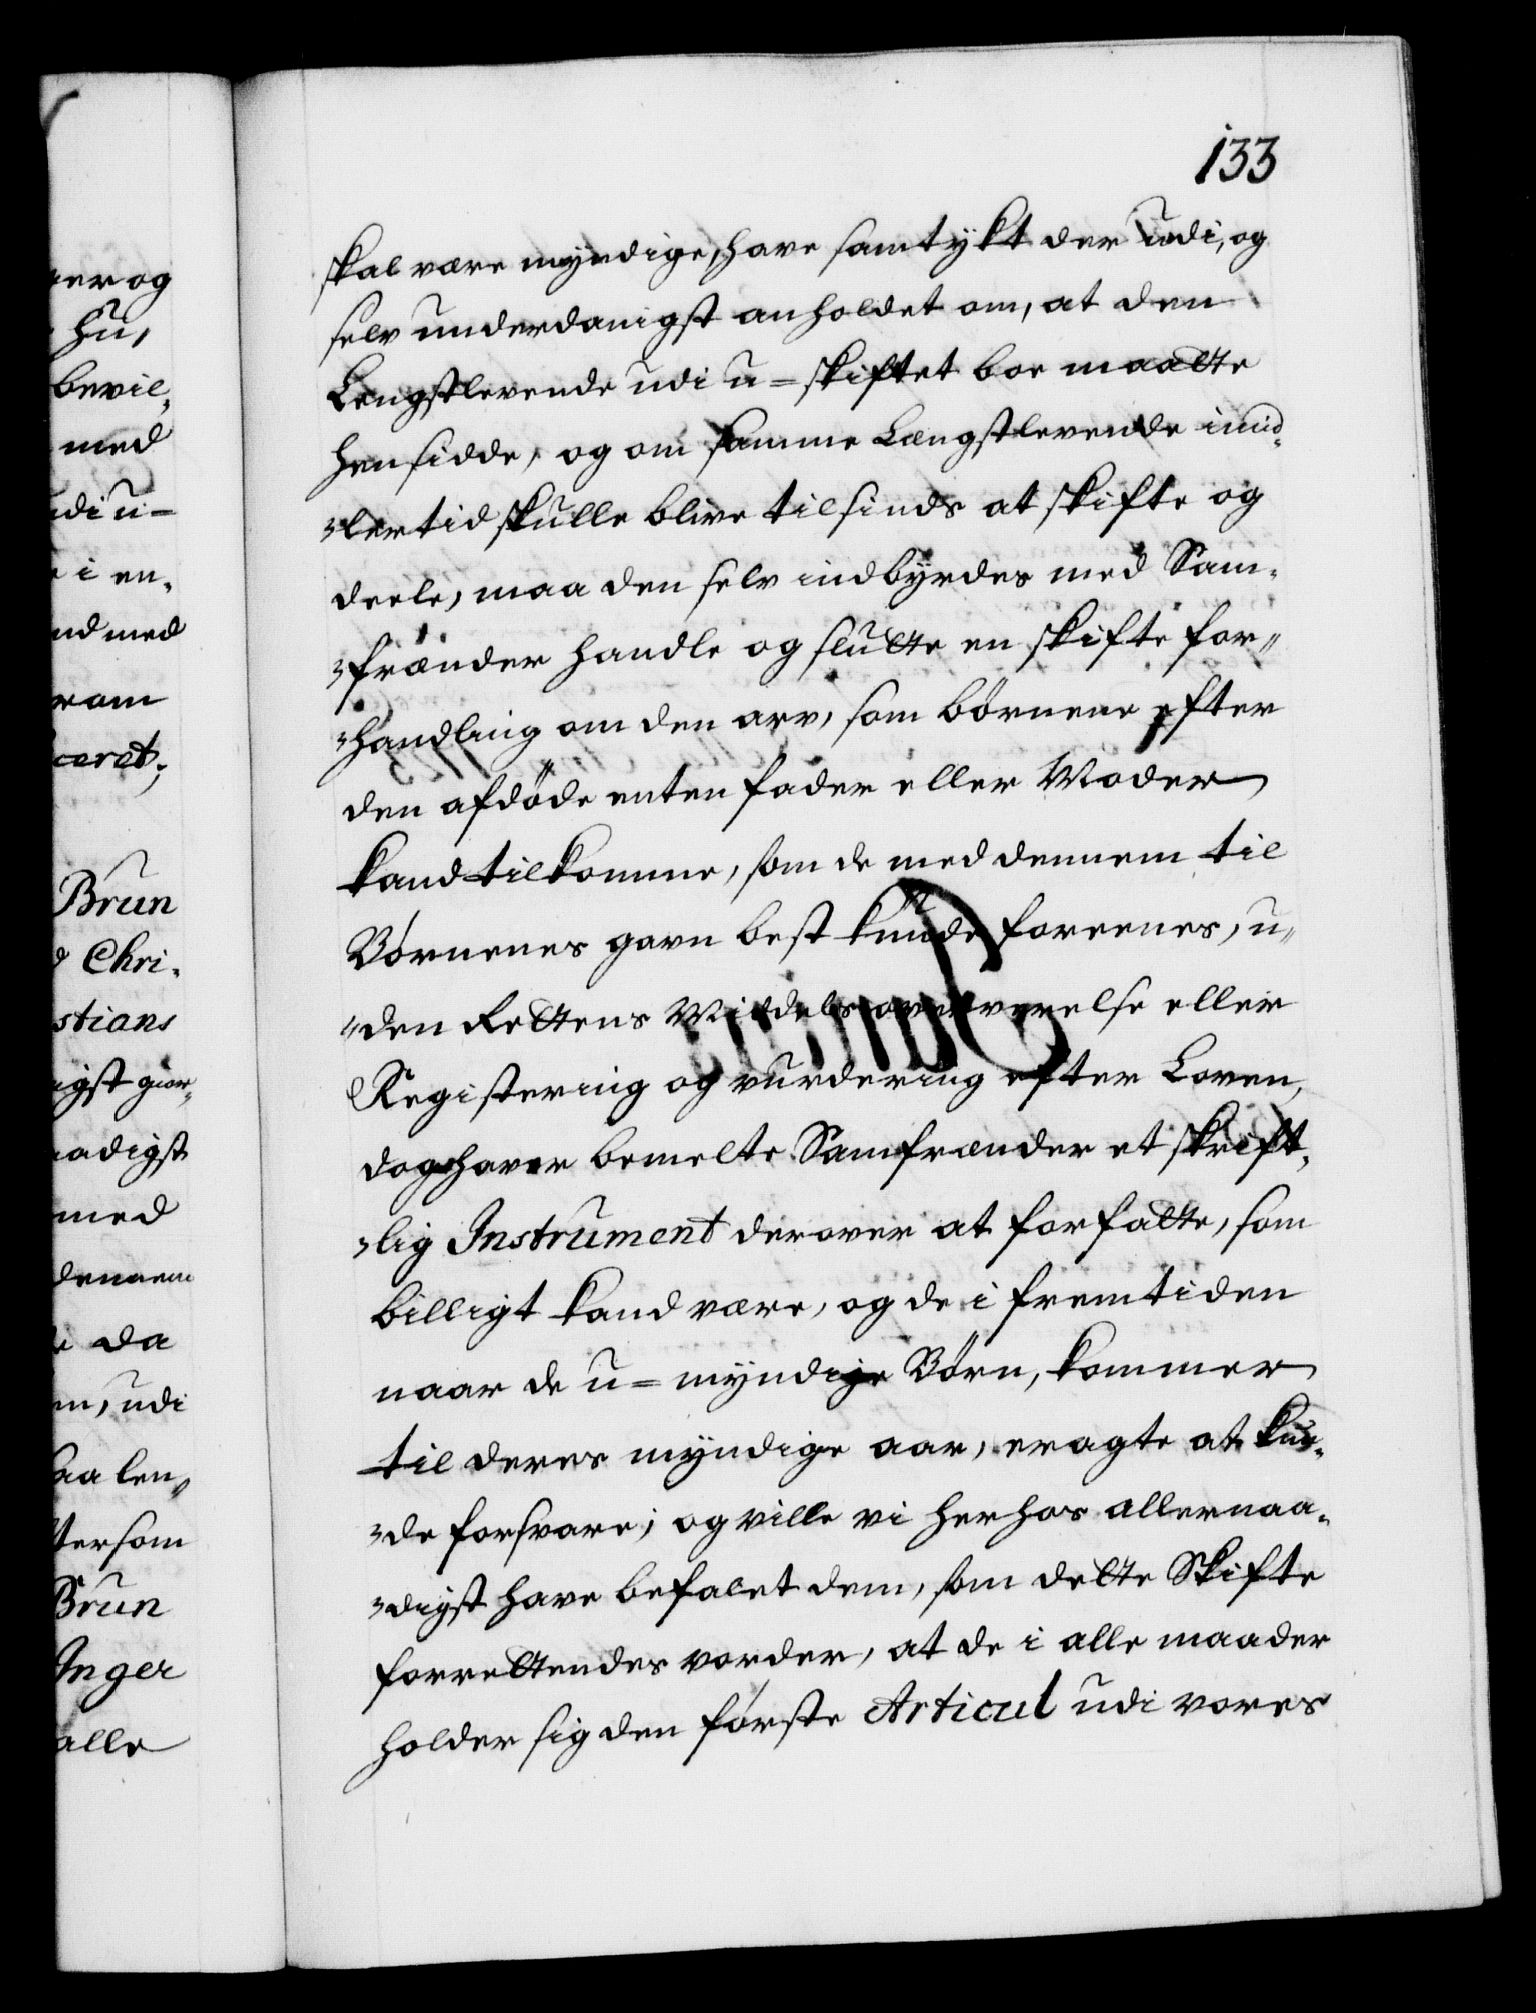 133
skal være myndige, have samtykt der udi, og
selv underdanigst anholdet om, at den
Længstlevende udi u=skiftet boe maatte
hensidde, og om samme Længstlevende imid-
-lertid skulle blive til sinds at skifte og
deele, maa den selv indbyrdes med Sam-
-frænder handle og slutte en skifte for-
-handling om den arv, som börnene efter
den afdöde enten fader eller Moder
kand tilkomme, som de med dennem til
Börnenes gavn best kunde foreenes, u-
-den Rettens Middels overværelse eller
Registering og vurdering efter Loven,
dog haver bemelte Samfrænder et skrift-
-lig Instrument derover at forfatte, som
billigt kand være, og de i fremtiden
naar de u=myndige Börn, kommer
til deres myndige aar, eragte at kun-
-de forsvare; og ville vi herhos allernaa-
-digst have befalet dem, som dette Skifte
forrettendes vorder, at de i alle maader
holder sig den förste Articul udi vores
er og
hu,
bevil-
med
udi u-
i en-
nd med
ram
ceret;
Brun
Chri-
stians
igst giør-
aadigst
med
dennem
da
, udi
aa len-
tersom
Brun
Inger
alle